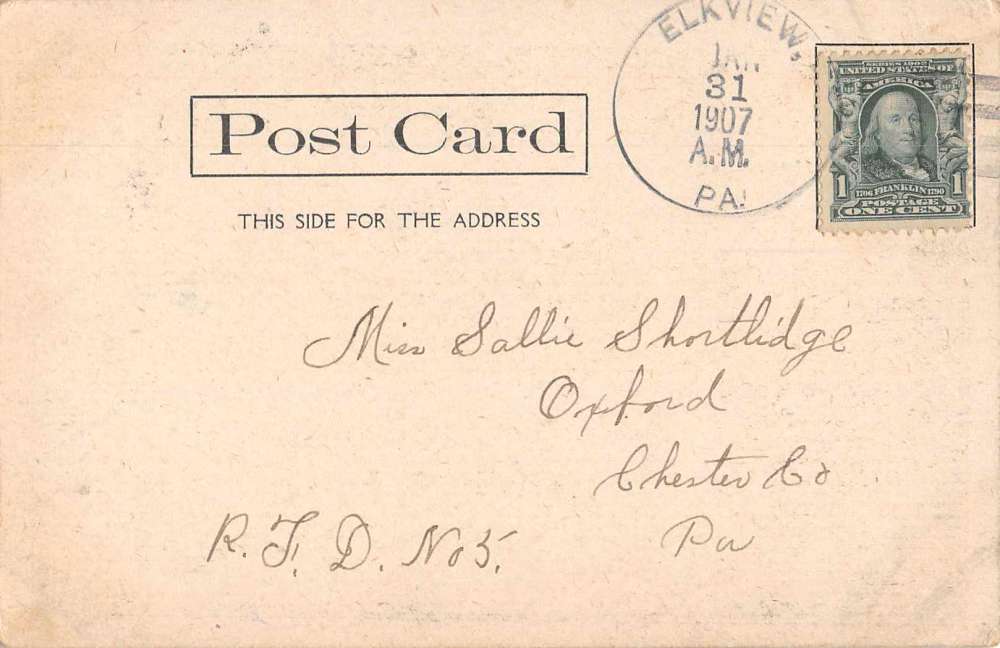 Post Card
THIS SIDE FOR THE ADDRESS
ELKVIEW,
JAN
31
1907
A.M.
PA.
SERIES 1902
UNITED STATES OF
AMERICA
1 1706 FRANKLIN 1790 1
POSTAGE
ONE CENT
Miss Sallie Shortlidge
Oxford
Chester Co
Pa
R. F. D. No 5.